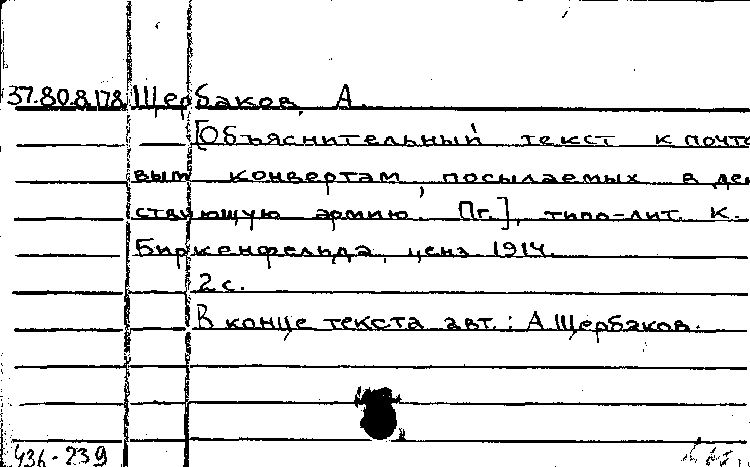 37.80.8.178 Щербаков, А.
[Объяснительный текст к почто
вым конвертам, посылаемых в дей
ствующую армию. Пг.], типо-лит. К.
Биркенфельда, ценз. 1914.
2 с.
В конце текста авт.: А. Щербаков.
436-239